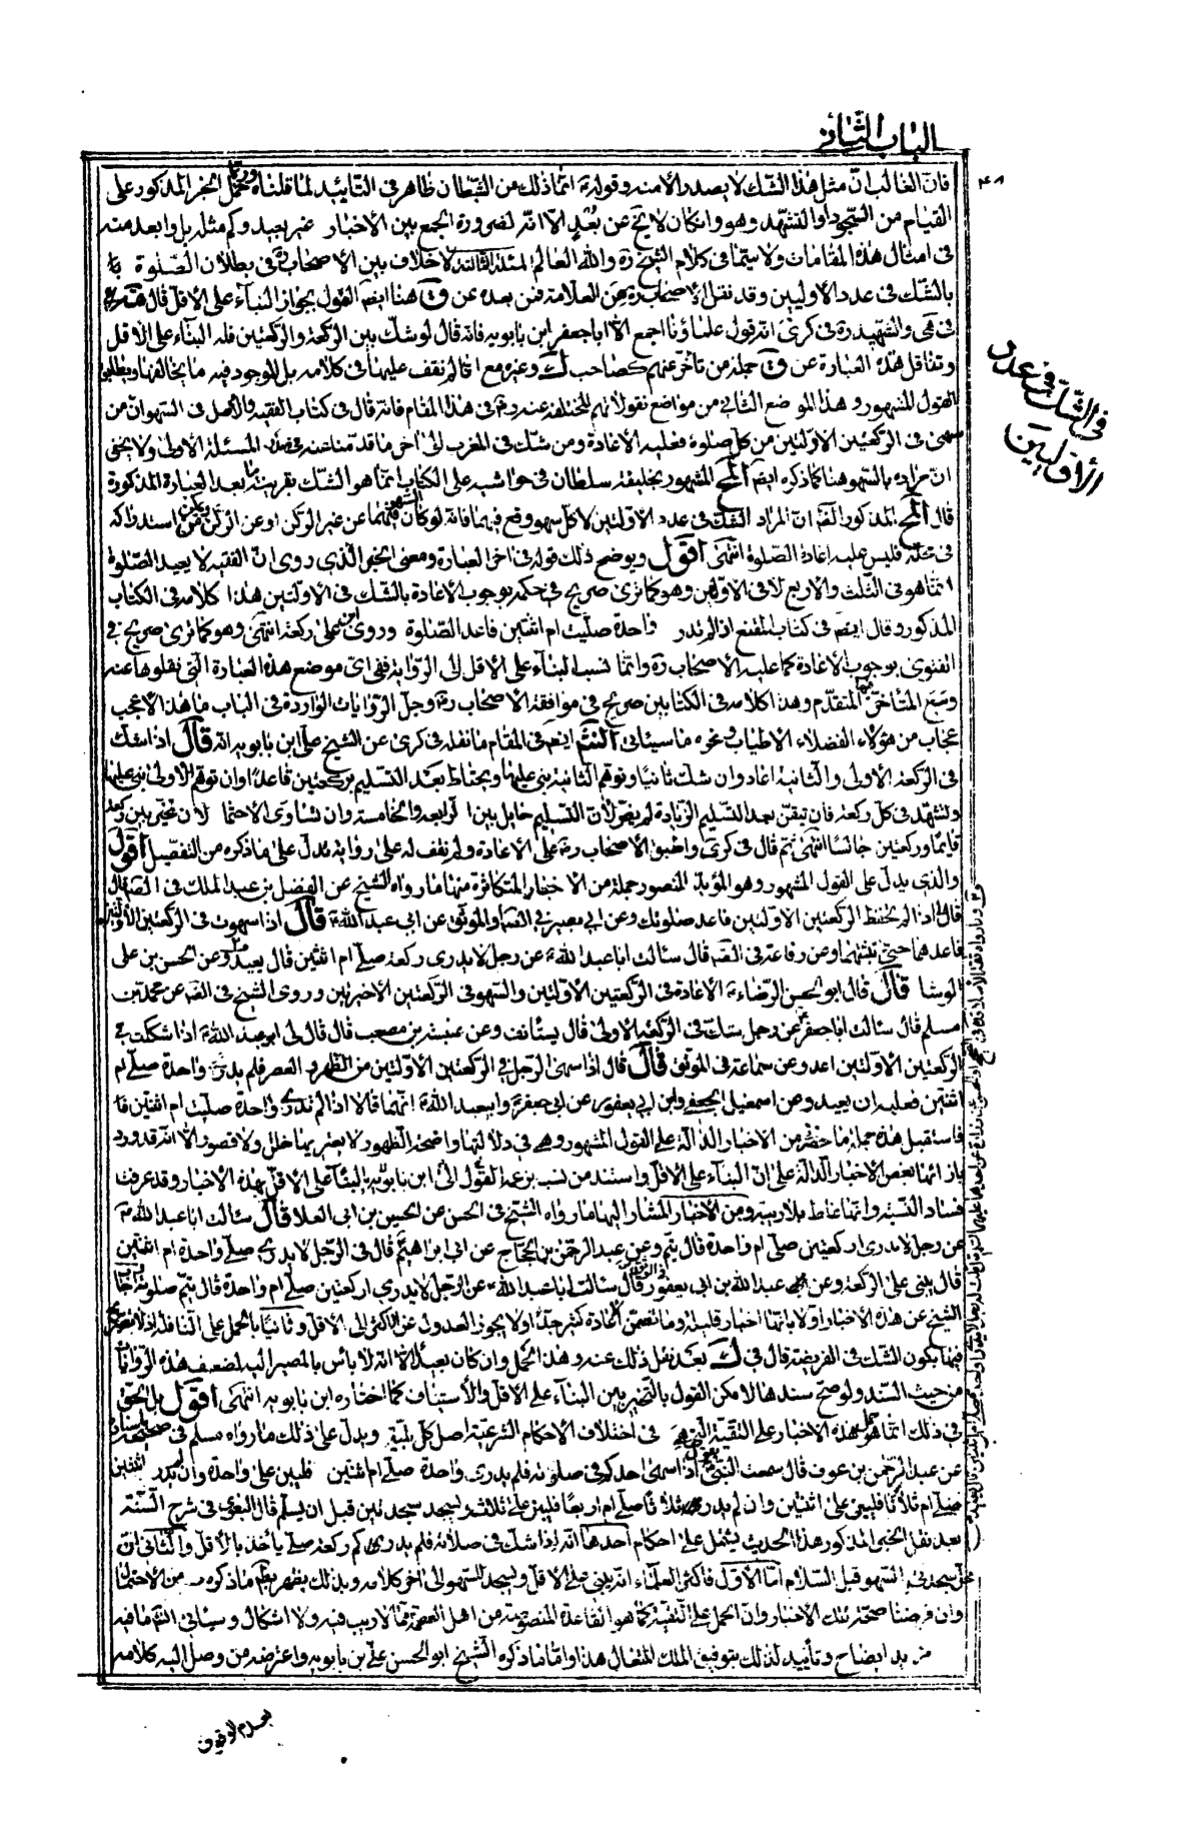 الباب الثاني
٤٨
فانّ الغالب انّ مثل هذا الشك لا يصدر الا منه وقوله ع انما ذلك من الشيطان ظاهر في التأييد لما قلناه وربما يحمل الخبر المذكور على
القيام من السجود او التشهد وهو وان كان لا يخ عن بُعدٍ الا انّه لضرورة الجمع بين الاخبار غير بعيد وكم مثله بل وابعد منه
في امثال هذه المقامات ولا سيّما في كلام الشيخ ره والله العالم المسئلة الثالثة لا خلاف بين الاصحاب في بطلان الصّلوة
بالشّك في عدد الاوليين وقد نقل الاصحاب رض من العلامة فمن بعده عن ق هنا ايضا القول بجواز البناء على الاقل قال
في هى والشهيد ره في كرى انّه قول علماؤنا اجمع الا ابا جعفر ابن بابويه فانّه قال لو شك بين الركعة والركعتين فله البناء على الاقل
وتناقل هذه العبارة عن ق جملة من تأخر عنهم كصاحب ك وغيره مع انّا لم نقف عليها في كلامه بل الموجود فيه ما يخالفها ويطابق
القول المشهور وهذا الموضع الثاني من مواضع نقولاتهم المختلفة عنه ره في هذا المقام فانّه قال في كتاب الفقيه والاصل في السهو ان من
سهى في الركعتين الاولتين من كلّ صلوة فعليه الاعادة ومن شك في المغرب الى اخر ما قدمنا عنه في المسئلة الاولى ولا يخفى
ان مراده بالسهو هنا كما ذكره ايضا المشهور بخليفة سلطان في حواشيه على الكتاب انما هو الشك بقرينة ما بعد العبارة المذكورة
قال المذكور انّ المراد الشك في عدد الاولتين لا كل سهو وقع فيهما فانه لو كان السهو فيهما عن غير الركن او عن الركن ويمكن استدراكه
في محلّه فليس عليه اعادة الصّلوة انتهى اقول ويوضح ذلك قوله في اخر العبارة ومعنى الخبر الّذي روى انّ الفقيه لا يعيد الصّلوة
انّما هو في الثلث والاربع لا في الاولتين وهو كما ترى صريح في حكمه بوجوب الاعادة بالشك في الاولتين هذا كلامه في الكتاب
المذكور وقال ايضا في كتاب المقنع اذا لم تدر واحدة صليت ام اثنتين فاعد الصّلوة وروى ابن على ركعة انتهى وهو كما ترى صريح في
الفتوى بوجوب الاعادة كما عليه الاصحاب ره وانما نسب البناء على الاقل الى الرّواية ففي اى موضع هذه العبارة التي نقلوها عنه
وتبع المتأخر المتقدم وهذا كلامه في الكتابين صريح في موافقة الاصحاب رض وجلّ الرّوايات الواردة في الباب ما هذا الا عجب
عجاب من هؤلاء الفضلاء الاطياب ونحوه ما سيأتي انش ايضا في المقام ما نقله في كرى عن الشيخ على ابن بابويه انّه قال اذا شك
في الركعة الاولى والثانية اعاد وان شك ثانيا وتوهم الثانية بنى عليها ويحتاط بعد التسليم بركعتين قاعدا وان توهم الاولى بنى عليها
وتشهد في كل ركعة فان تيقن بعد التسليم الزيادة لم يضرّ لانّ التسليم حايل بين الرابعة والخامسة وان تساوى الاحتمالان تخير بين ركعة
قائما وركعتين جالسا انتهى ثم قال في كرى واطبق الاصحاب رض على الاعادة ولم نقف له على رواية تدل على ما ذكره من التفصيل اقول
والّذي يدلّ على القول المشهور وهو المؤيد المنصور جملة من الاخبار المتكاثرة منها ما رواه الشيخ عن الفضل بن عبد الملك في الص قال
قال لي اذا لم تحفظ الركعتين الاولتين فاعد صلوتك وعن ابي بصير في الص او الموثق عن ابي عبد الله ع قال اذا سهوت في الركعتين الاولتين
فاعدهما حتى تثبتهما وعن رفاعة في الص قال سئالت ابا عبد الله ع عن رجل لا يدرى ركعة صلّى ام اثنتين قال يعيد وعن الحسن بن على
الوشا قال قال ابو الحسن الرضا ع الاعادة في الركعتين الاولتين والسهو في الركعتين الاخيرتين وروى الشيخ في الص عن محمد بن
مسلم قال سئالت ابا جعفر ع عن رجل شك في الركعة الاولى قال يستأنف وعن عنبسة بن مصعب قال قال لي ابو عبد الله ع اذا شككت في
الركعتين الاولتين اعد وعن سماعة في الموثق قال قال اذا سهى الرجل في الركعتين الاولتين من الظهر والعصر فلم يدر واحدة صلّى ام
اثنتين فعليه ان يعيد وعن اسمعيل الجعفي وابن ابي يعفور عن ابي جعفر ع وابيعبد الله ع انهما قالا اذا لم تدر واحدة صليت ام اثنتين
فاستقبل هذه جملة ما حضر من الاخبار الدالة على القول المشهور وهي في دلالتها واضحة الظهور لا يعتريها خلل ولا قصور الا انّه قد ورد
بازائها بعض الاخبار الدّالة على انّ البناء على الاقل واستند من نسب القول الى ابن بابويه بالبناء على الاقل لهذه الاخبار وقد عرفت
فساد النّسبة وانّها غلط بلا ريبة ومن الاخبار المشار اليها ما رواه الشيخ في الحسن عن الحسين بن ابي العلا قال سئالت ابا عبد الله ع
عن رجل لا يدرى اركعتين صلى ام واحدة قال يتم وعن عبد الرحمن بن الحجاج عن ابي ابراهيم ع قال في الرّجل لا يدرى صلى واحدة ام اثنتين
قال يبنى على الركعة وعن عبد الله بن ابي يعفور قال سئالت ابا عبد الله ع عن الرجل لا يدرى اركعتين صلى ام واحدة قال يتم صلوته اجاب
الشيخ عن هذه الاخبار اولا بانّها اخبار قليلة وما تضمن الاعادة كثير جدّا ولا يجوز العدول عن الاكثر الى الاقل وثانيا بالحمل على النافلة اذ لا تصريح
فيها بكون الشك في الفريضة قال في ك بعد نقل ذلك عنه وهذا الحمل وان كان بعيدًا الا انّه لا باس بالمصير اليه لضعف هذه الروايات
من حيث السّند ولو صحّ سندها لامكن القول بالتخيير بين البناء على الاقل والاستيناف كما اختاره ابن بابويه انتهى اقول بل الحقّ
في ذلك انّما هو حمل هذه الاخبار على التقيّة التي هي في اختلاف الاحكام الشرعيّة اصل كلّ بليّة ويدلّ على ذلك ما رواه مسلم في صحيحه باسناده
عن عبد الرّحمن بن عوف قال سمعت النبيّ يقول اذا سهى احدكم في صلوته فلم يدر واحدة صلّى ام اثنتين فليبن على واحدة وان لم يدر اثنتين
صلّى ام ثلاثا فليبن على اثنتين وان لم يدر ثلاثا صلّى ام اربعا فليبن على ثلاث وليسجد سجدتين قبل ان يسلّم قال البغوى في شرح السّنة
بعد نقل الخبر المذكور هذا الحديث يشتمل على احكام احدها انّه اذا شك في صلاته فلم يدر كم ركعة صلّى يأخذ بالاقل والثاني انّ
محلّ سجدتي السّهو قبل السّلام امّا الاول فاكثر العلماء انّه يبنى على الاقل ويسجد للسّهو الى اخر كلامه وبذلك يظهر ما ذكره من الاحتمال
وان فرضنا صحّة تلك الاخبار وانّ الحمل على التقيّة كما هو القاعدة المنصوصة من اهل العصمة ممّا لا ريب فيه ولا اشكال وسيأتي انش ما فيه
مزيد ايضاح وتأييد لذلك بتوفيق الملك المتعال هذا وامّا ما ذكره الشّيخ ابو الحسن على بن بابويه واعترضه من وصل اليه كلامه
في الشك في عدد
الأوليين
بعدم الوقوف